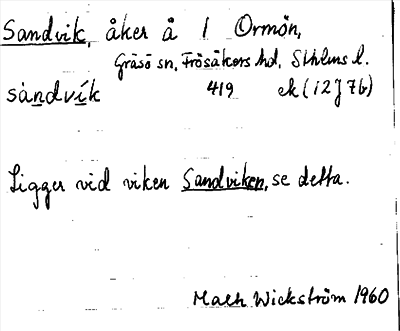 Sandvik, åker å 1 Ormön,
Gräsö sn, Frösåkers hd, Sthlms l.
sàndvík 419 ek (12J 7b)
Ligger vid viken Sandviken, se detta.
Math Wickström 1960